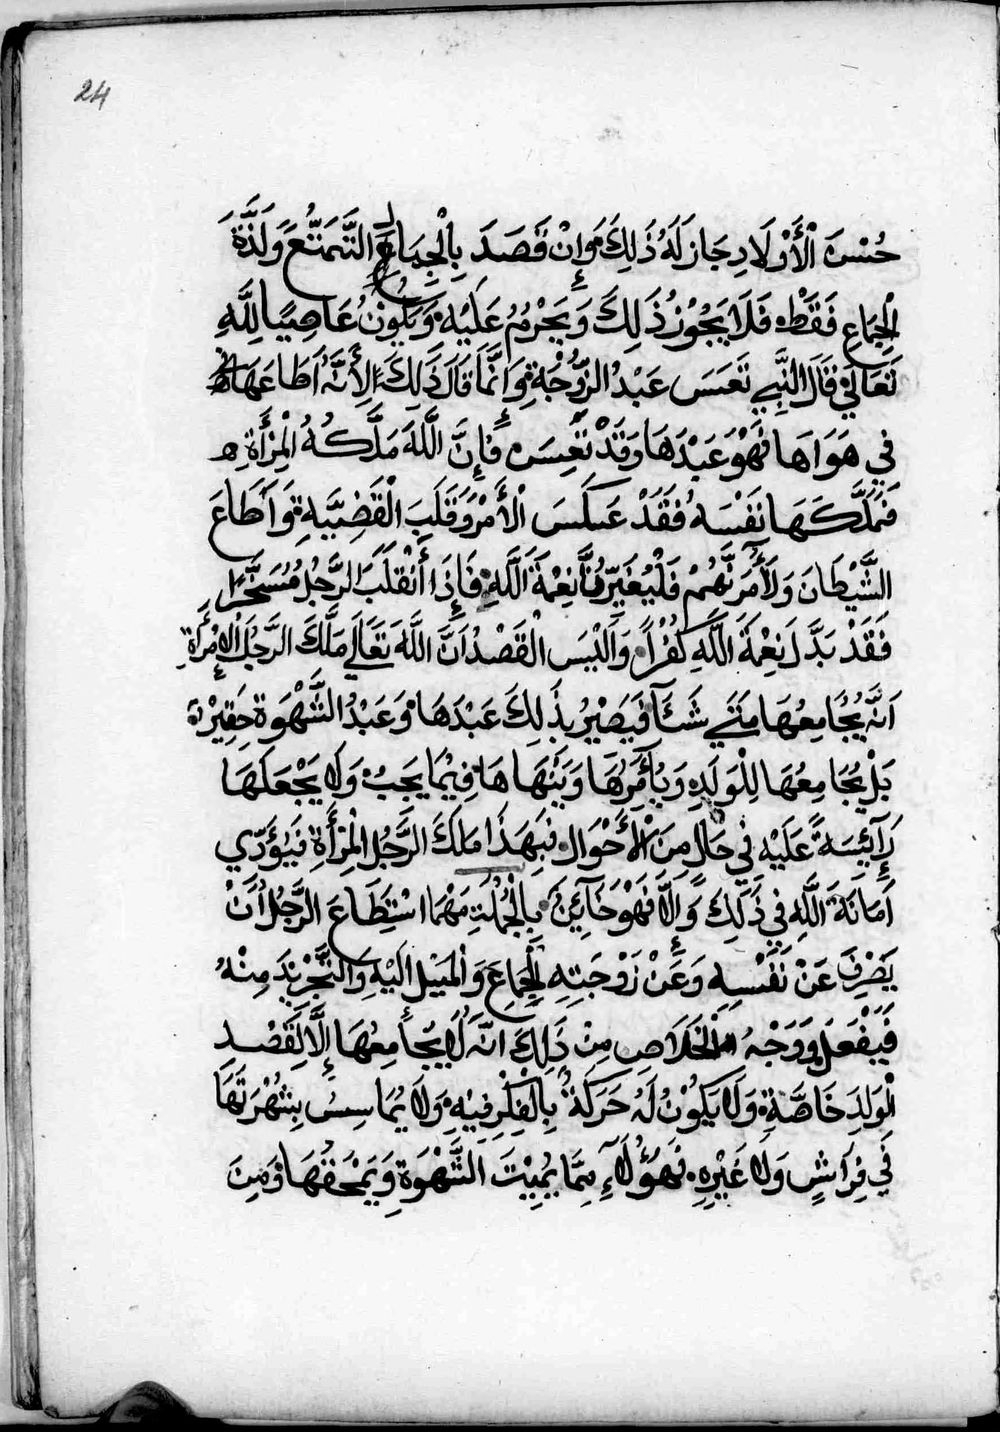 24
حُسْنَ الْأَوْلَادِ جَازَ لَهُ ذَلِكَ وَإِنْ قَصَدَ بِالْجِمَاعِ التَّمَتُّعَ وَلَذَّةَ
الْجِمَاعِ فَقَطْ فَلَا يَجُوْزُ ذَلِكَ وَيَحْرُمُ عَلَيْهِ وَيَكُونُ عَاصِيًا لِلَّهِ
تَعَالَى قَالَ النَّبِي تَعَسَ عَبْدُ الزَّوْجَةِ وَانَّمَا قَالَ ذَلِكَ لِأَنَّهُ اَطَاعَهَا
فِي هَوَاهَا فَهْوَ عَبْدَهَا وَقَدْ تَعِسَ فَإِنَّ اللَّهَ مَلَّكَهُ الْمِرْأَةِ
فَمَلَّكَهَا نَفْسَهُ فَقَدْ عَسَكَسَ الْأَمْرَ وَقَلَبَ الْقَضِيَّةِ وَاَطَاعَ
الشَّيْطَانَ وَلَأَمُرَنَّهُمْ فَلْيُغَيِّرُنَّا نِعْمَةَ اللَّهِ فَإِذَا أَنْقَلَبَ الرَّجُلُ مُسَخَّرًا
فَقَدْ بَدَّلَ نِعْمَةَ اللَّهِ كُفْرًا وَالَيْسَ الْقَصْدُ اَنَّ اللَّهَ تَعَالَى مَلَّكَ الرَّجُلَ الْإِمْرَأَةَ
اَنَّهُ يُجَامِعُهَا مَتَي شَآءَ فَيَصِيْرُ بِذَلِكَ عَبْدَهَا وَعَبْدُ الشَّهْوَةِ حَقِيْرَةِ
بَلْ يُجَامِعُهَا لِلْوَلَدِ وَيَأْمُرُهَا وَيَنْهَاهَا فِيْمَا يَجَبُ وَلَا يَجْعَلَهَا
رَإَئِيْسَةً عَلَيْهِ فِي حَالٍ مِنَ الْأَحْوَالِ فَبِهَذَا مَلَكَ الرَّجُلُ الْمِرْأَةِ فَيُؤَدِّي
اَمَانَةَ اللَّهِ فِي ذَلِكَ وَإِلَّا فَهْوَ خَآئِنٌ بِالْجُمْلَةِ مَهْمَا اسْتَطَاعَ الرَّجُلُ اَنْ
يَصْرِفَ عَنْ نَفْسِهِ وَعَنْ زَوْجَتِهِ الْجِمَاعَ وَالْمَيْلَ اِلَيْهِ وَالتَّجْرِيْدَ مِنْهُ
فَيَفْعَلُ وَوَجْهُ الْخَلَاصِ مِنْ ذَلِكَ اَنَّهُ لَا يُجَامِعُهَا إِلَّا لِقَصْدِ
الْوَلَدَ خَاصَّةً وَلَا يَكُوْنُ لَهُ حَرَكَةٌ بِالْفِكْرِ فِيْهِ وَلَا يُمَاسِسُ بِشُهْرَتِهَا
فِي فِرَاشٍ وَلَا غَيْرِهِ فَهَؤُلَآءِ مِمَّا يُمِيْتَ الشَّهْوَةِ وَيَمْحَقُهَا وَمِنَ